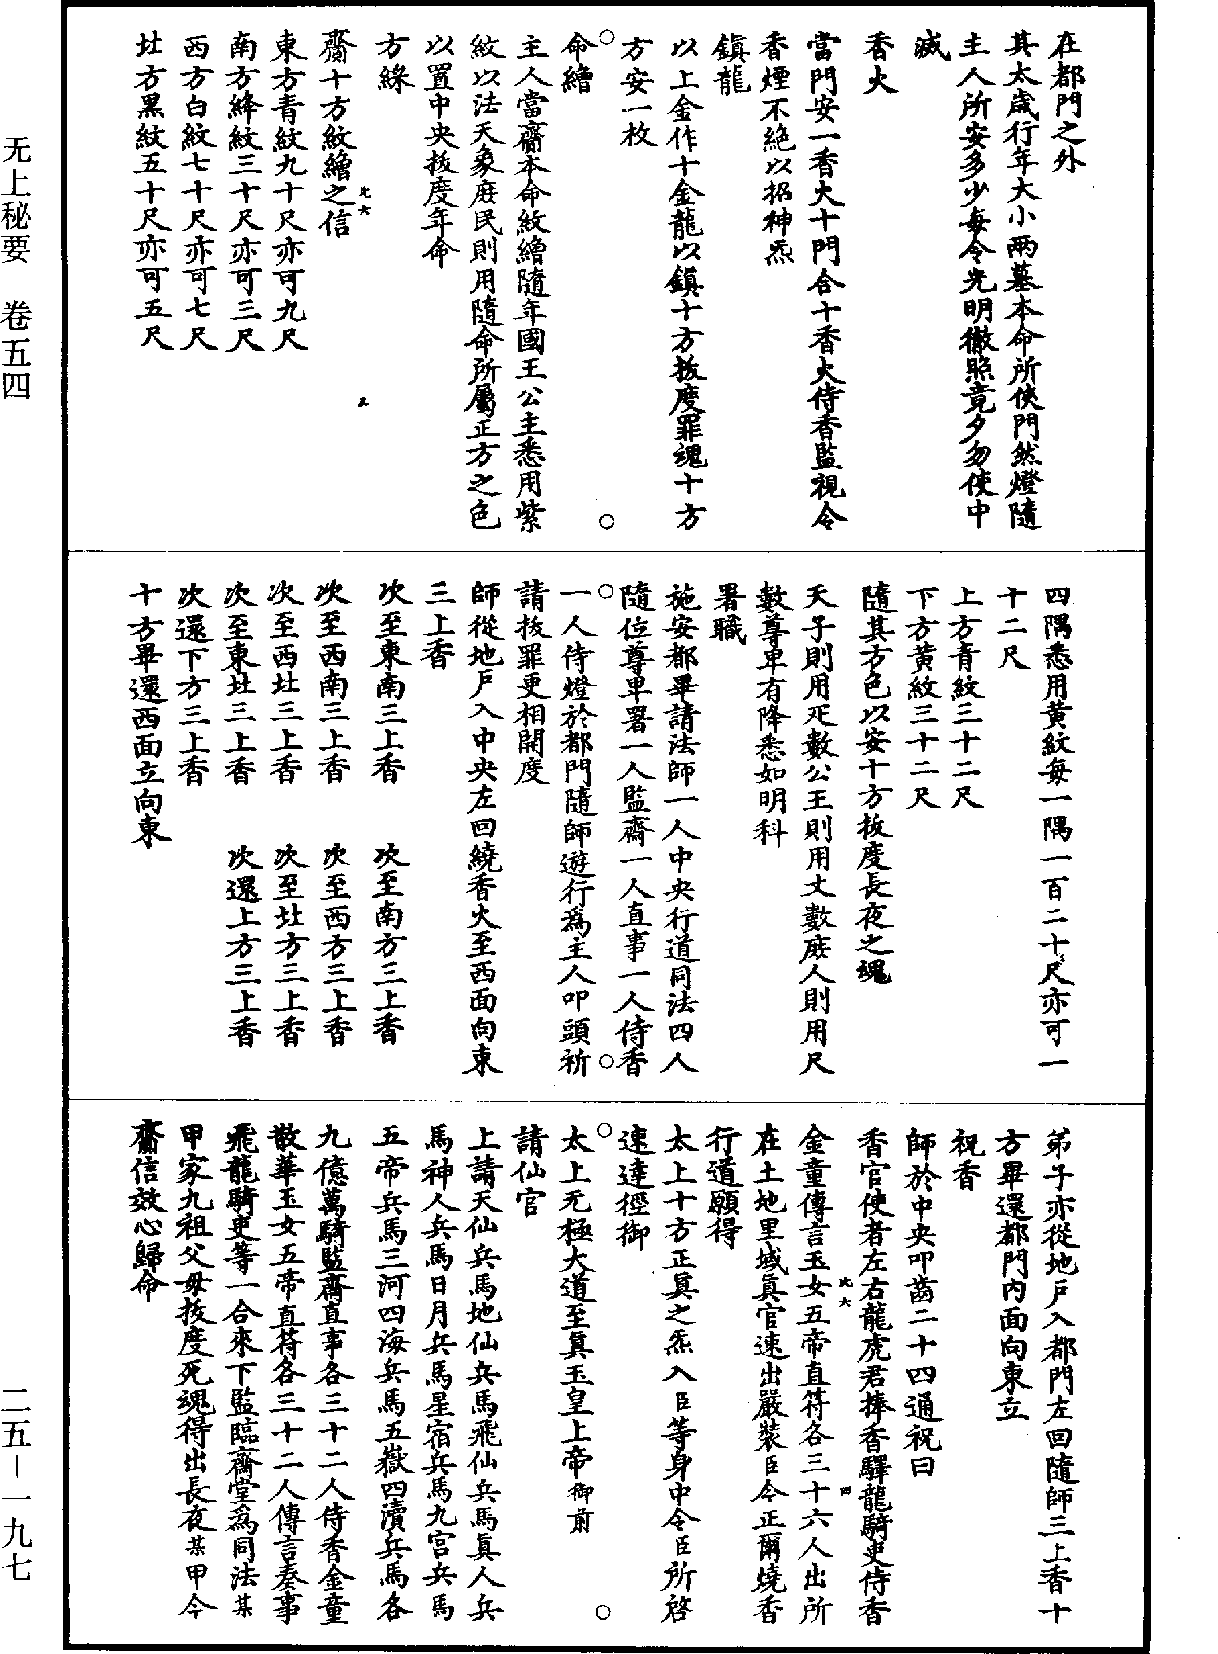 在都門之外
其太歲行年大小兩墓本命所使門然燈隨
主人所安多少每令光明徹照竟夕勿使中
滅
香火
當門安一香火十門合十香火侍香監視令
香煙不絕以招神炁
鎮龍
以上金作十金龍以鎮十方拔度罪魂十方
方安一枚
命繒
主人當齋本命紋繒隨年國王公主悉用紫
紋以法天象庶民則用隨命所屬正方之色
以置中央拔度年命
方綵
齎十方紋繒之信
東方青紋九十尺亦可九尺
南方絳紋三十尺亦可三尺
西方白紋七十尺亦可七尺
北方黑紋五十尺亦可五尺
四隅悉用黃紋每一隅一百二十尺亦可一
十二尺
上方青紋三十二尺
下方黃紋三十二尺
隨其方色以安十方拔度長夜之魂
天子則用疋數公王則用丈數庶人則用尺
數尊卑有降悉如明科
署職
施安都畢請法師一人中央行道同法四人
隨位尊卑署一人監齋一人直事一人侍香
一人侍燈於都門隨師遊行為主人叩頭祈
請拔罪更相開度
師從地戶入中央左回繞香火至西面向東
三上香
次至東南三上香　次至南方三上香
次至西南三上香　次至西方三上香
次至西北三上香　次至北方三上香
次至東北三上香　次還上方三上香
次還下方三上香
十方畢還西面立向東
弟子亦從地戶入都門左回隨師三上香十
方畢還都門內面向東立
祝香
師於中央叩齒二十四通祝曰
香官使者左右龍虎君捧香驛龍騎吏侍香
金童傳言玉女五帝直符各三十六人出所
在土地里域真官速出嚴裝臣今正爾燒香
行道願得
太上十方正真之炁入臣等身中令臣所啓
速達徑御
太上无極大道至真玉皇上帝御前
請仙官
上請天仙兵馬地仙兵馬飛仙兵馬真人兵
馬神人兵馬日月兵馬星宿兵馬九宮兵馬
五帝兵馬三河四海兵馬五嶽四瀆兵馬各
九億萬騎監齋直事各三十二人侍香金童
散華玉女五帝直符各三十二人傳言奏事
飛龍騎吏等一合來下監臨齋堂為同法某
甲家九祖父母拔度死魂得出長夜某甲今
齎信效心歸命
无上秘要　卷五四
二五－一九七